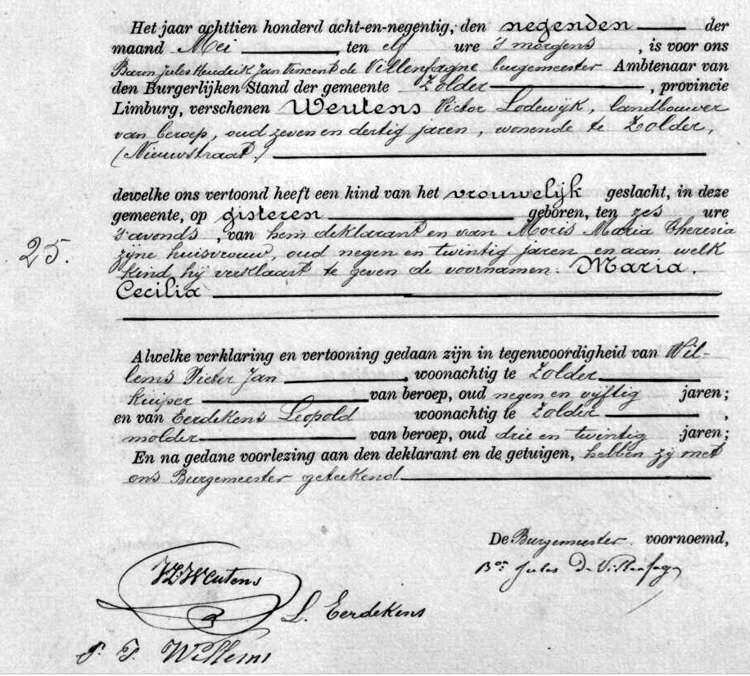 Het jaar achttien honderd acht-en-negentig, den negenden der
maand Mei, ten elf ure 's morgens, is voor ons
Baron Jules Hendrik Jan Vincent de Villenfagne burgemeester Ambtenaar van
den Burgerlijken Stand der gemeente Zolder, provincie
Limburg, verschenen Weutens Victor Lodewijk, landbouwer
van beroep, oud zeven en dertig jaren, wonende te Zolder,
(Nieuwstraat)
dewelke ons vertoond heeft een kind van het vrouwelijk geslacht, in deze
gemeente, op gisteren geboren, ten zes ure
's avonds, van hem deklarant en van Moris Maria Theresia
25.
zijne huisvrouw, oud negen en twintig jaren en aan welk
kind hij verklaart te geven de voornamen: Maria.
Cecilia
Alwelke verklaring en vertooning gedaan zijn in tegenwoordigheid van Wil-
lems Pieter Jan, woonachtig te Zolder
kuiper van beroep, oud negen en vijftig jaren;
en van Eerdekens Leopold woonachtig te Zolder,
molder van beroep, oud drie en twintig jaren;
En na gedane voorlezing aan den deklarant en de getuigen, hebben zij met
ons Burgemeester geteekend
De Burgemeester voornoemd,
Bon Jules De Villenfagne
VLWeutens
L. Eerdekens
P. J. Willems